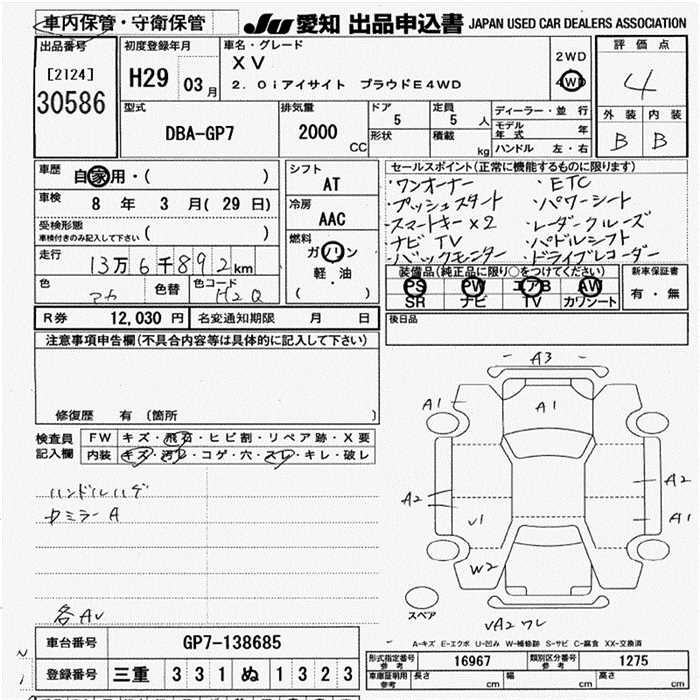 車内保管・守衛保管 JU 愛知 出品申込書 JAPAN USED CAR DEALERS ASSOCIATION
出品番号
[2124]
30586
初度登録年月
H29 03月
車名・グレード
XV
2.0iアイサイト プラウドE4WD
2WD
4WD
評価点
4
外装 内装
B B
型式
DBA-GP7
排気量
2000 CC
ドア 5
定員 5 人
形状
積載 kg
ディーラー・並行
モデル年式 年
ハンドル 左・右
車歴 自家用・( )
車検 8年 3月(29日)
受検形態
車検付きのみ記入して下さい ( )
走行 13万6千892km
色 色替 色コード H2Q
シフト
AT
冷房
AAC
燃料
ガソリン
軽・油
( )
セールスポイント(正常に機能するものに限ります)
・ワンオーナー ・ETC
・プッシュスタート ・パワーシート
・スマートキー×2 ・レーダークルーズ
・ナビTV ・パドルシフト
・バックモニター ・ドライブレコーダー
装備品(純正品に限り○をつけてください)
PS PW エアB AW
SR ナビ TV カワシート
新車保証書
有・無
R券 12,030円 名変通知期限 月 日
後日品
注意事項申告欄(不具合内容等は具体的に記入して下さい)
修復歴 有 (箇所 )
検査員記入欄
FW キズ・飛石・ヒビ割・リペア跡・X要
内装 キズ・汚レ・コゲ・穴・スレ・キレ・破レ
ハンドルハゲ
カミラーA
各AU
A3
A1 A1
A2 A2
U1 A1
W2
スペア
UA2ワレ
A-キズ E-エクボ U-凹み W-補修跡 S-サビ C-腐食 XX-交換済
車台番号 GP7-138685
登録番号 三重 331 ぬ 1323
形式指定番号 参考 16967 類別区分番号 参考 1275
車庫証明用 参考 長さ cm 幅 cm 高さ cm